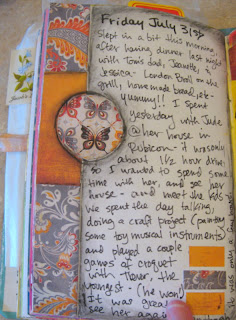 Friday July 31st
Slept in a bit this morning.
after having dinner last night
with Tom's dad, Jeanette, &
Jessica - London Broil on the
grill, homemade bread, etc -
yummy!! I spent
yesterday with Jude
@ her house in
Rubicon - it was only
about 1 1/2 hour drive
so I wanted to spend some
time with her, and see her
house - and meet the kids
We spent the day talking,
doing a craft project (painting
some toy musical instruments)
and played a couple
games of croquet
with Trevor, the
youngest - (he won)
It was great
see her again